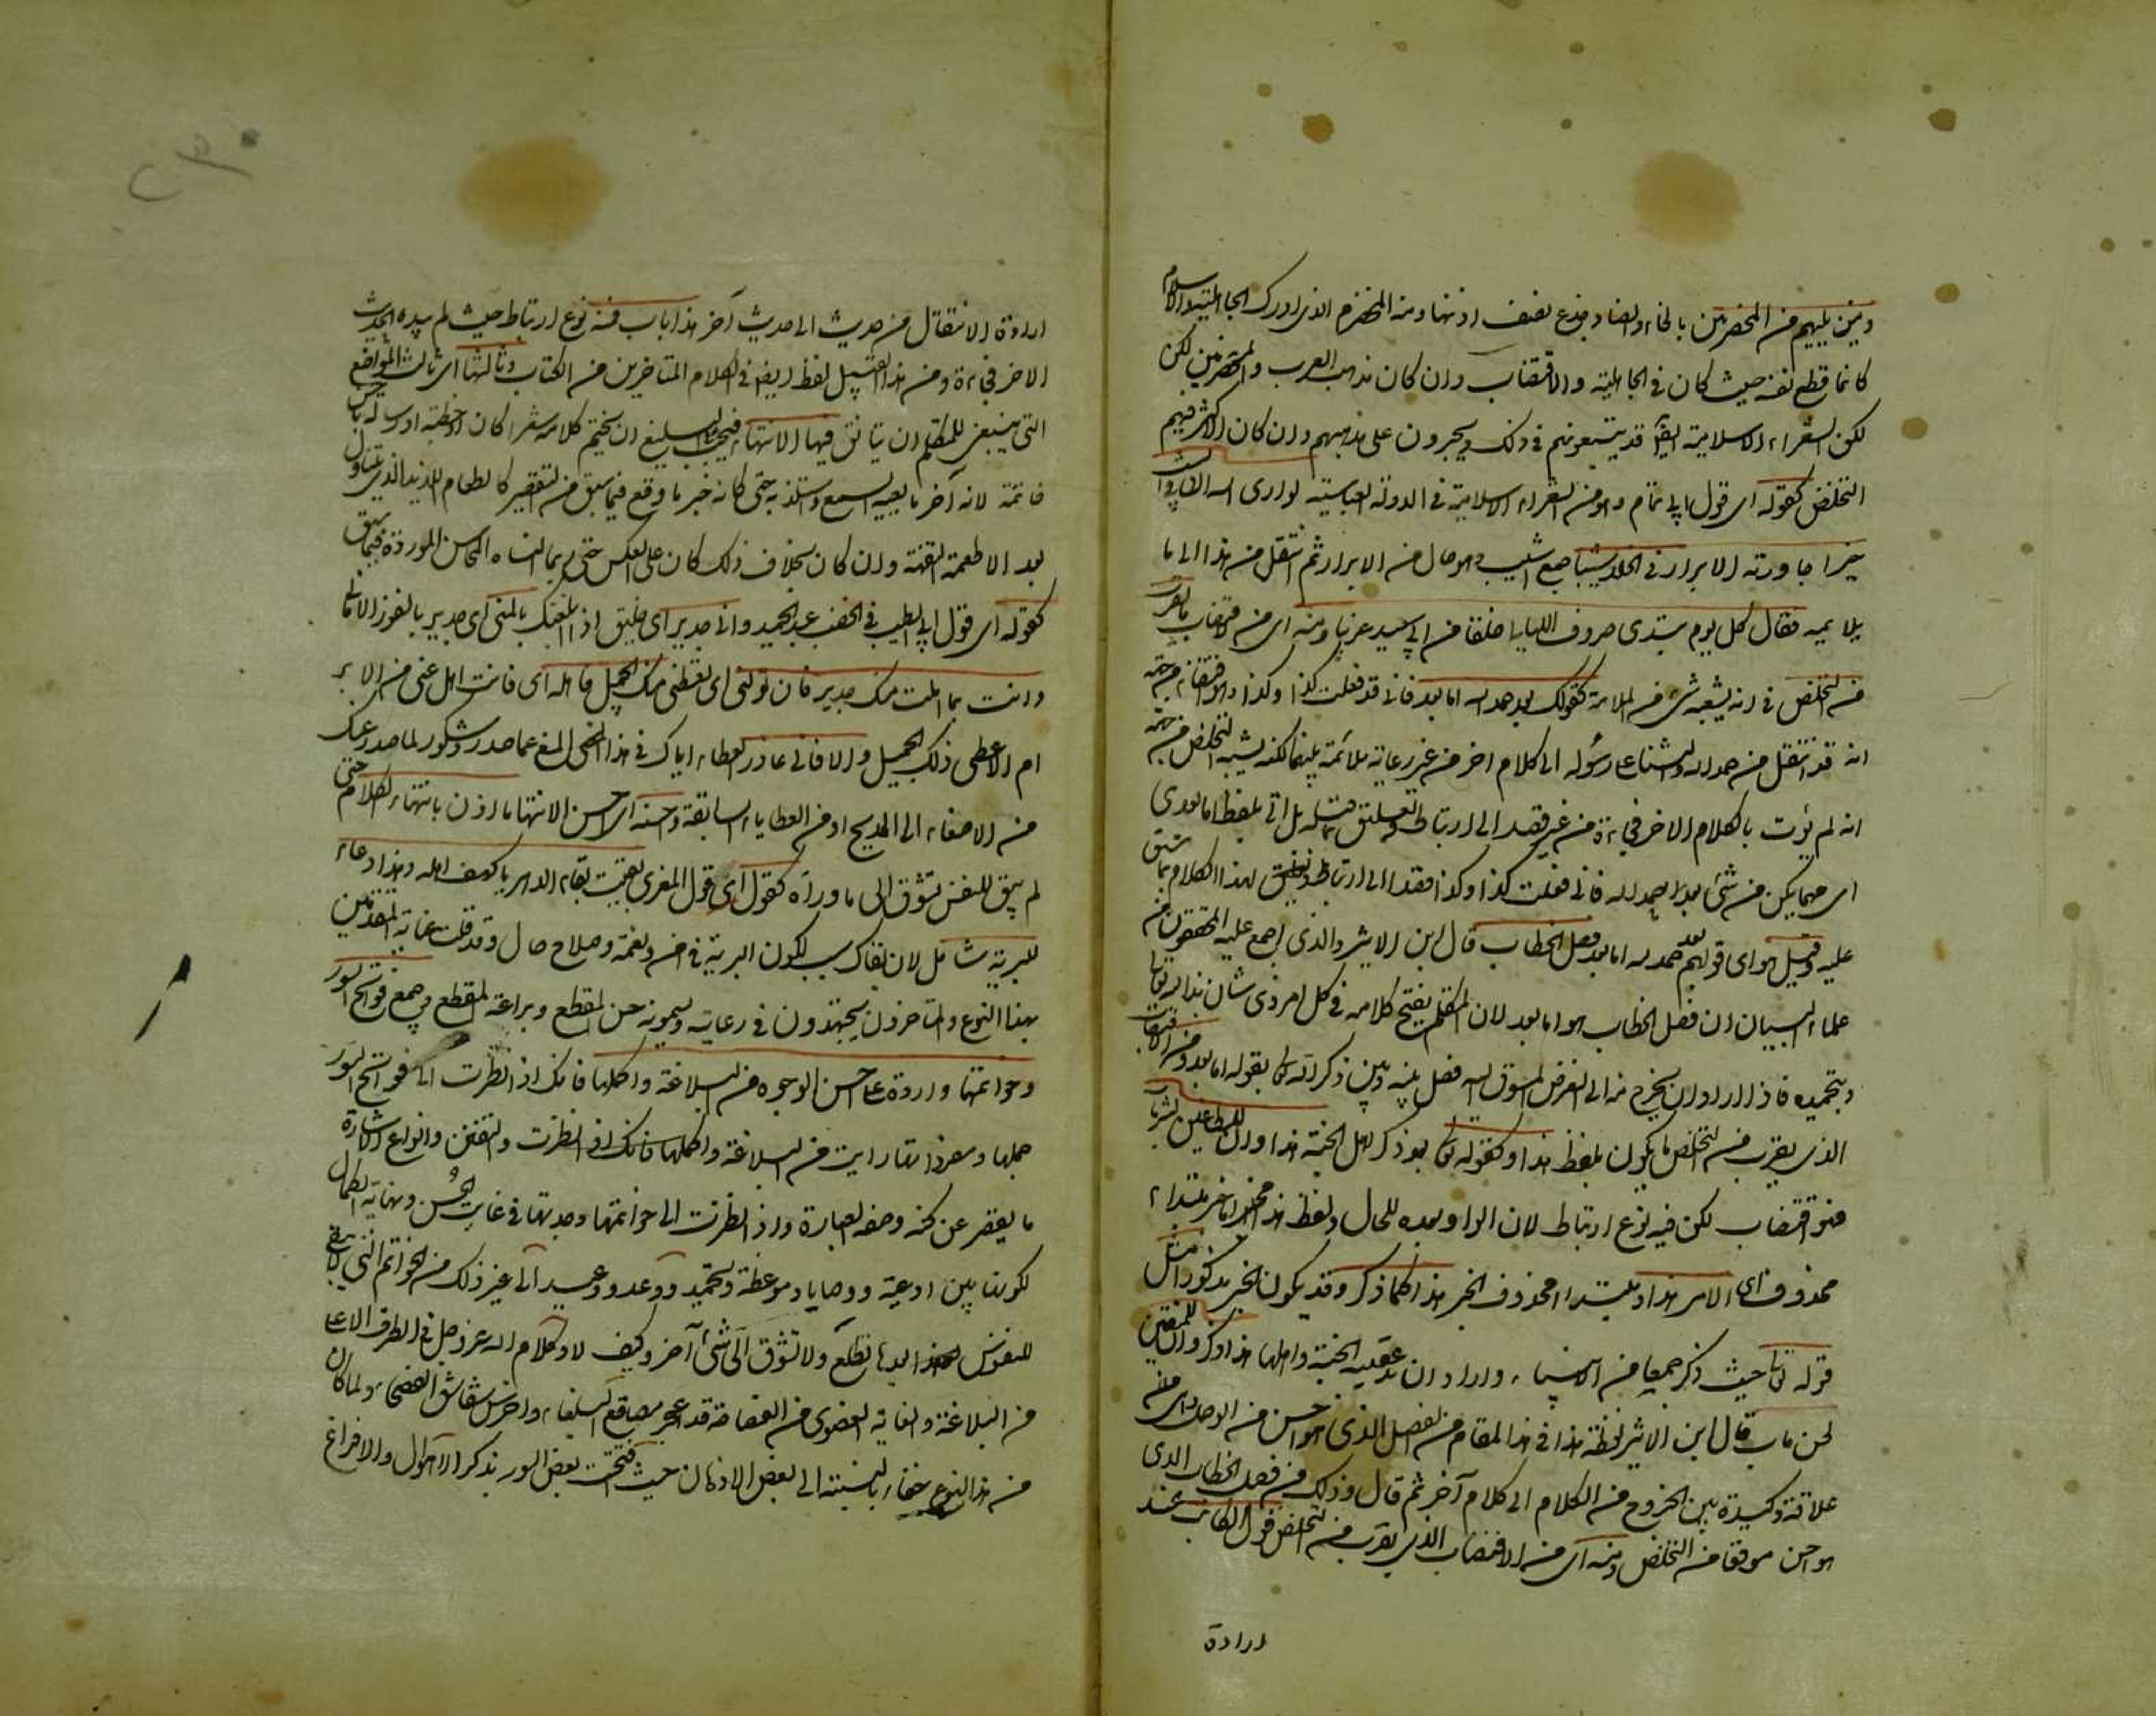 ومن يليهم من المخضرمين بالخاء والضاد جذع نصف اذنها ومنه المخضرم الذى ادرك الجاهلية والاسلام
كانما قطع نصفه حيث كان فى الجاهلية والاقتضاب وان كان مذهب العرب والمخضرمين لكن
لكن الشعراء الاسلامية ايضا قد يتبعونهم فى ذلك ويجرون على مذهبهم وان كان الاكثر فيهم
التخلص كقوله اى قول ابى تمام وهو من الشعراء الاسلامية فى الدولة العباسية لو ارى الله ان فى الشيب
خيرا جاورته الابرار فى الخلد شيبا جمع اشيب وهو حال من الابرار ثم انتقل من هذا الى ما
يلايمه فقال كل يوم تبدى صروف الليالى خلقا من ابى سعيد غريبا ومنه اى من الاقتضاب ما يقرب
من التخلص فى انه يشبه شئ من الملايمة كقولك بعد حمد الله اما بعد فانى قد فعلت كذا وكذا وهو اقتضاب من جهة
انه قد انتقل من حمد الله والثناء على رسوله الى كلام اخر من غير رعاية ملائمة بينهما لكنه يشبه التخلص من جهة
انه لم يؤت بالكلام الاخر فجاءة من غير قصد الى ارتباط وتعليق بما قبله بل اتى بلفظ اما بعد اى
اى مهما يكن من شئ بعد حمد الله فانى فعلت كذا وكذا قصدا الى ارتباط لهذا الكلام بما سبق
عليه وقيل هو اى قولهم بعد حمد الله اما بعد فصل الخطاب قال ابن الاثير والذى اجمع عليه المحققون من
علماء البيان ان فصل الخطاب هو اما بعد لان المتكلم يفتتح كلامه فى كل امر ذى شان بذكر الله تعالى
وبتحميده فاذا اراد ان يخرج منه الى الغرض المسوق اليه فصل بينه وبين ذكر الله تعالى بقوله اما بعد ومن الاقتضاب
الذى يقرب من التخلص ما يكون بلفظ هذا كقوله تعالى بعد ذكر اهل الجنة هذا وان للطاغين لشر مآب
فهو اقتضاب لكن فيه نوع ارتباط لان الواو بعده للحال ولفظ هذا اما خبر مبتداء
محذوف اى الامر هذا او مبتداء محذوف الخبر هذا كما ذكر وقد يكون الخبر مذكورا مثل
قوله تعالى حيث ذكر جمعا من الانبياء واراد ان يذكر عقيبه الجنة واهلها هذا ذكر وان للمتقين
لحسن مآب قال ابن الاثير لفظة هذا فى هذا المقام من الفصل الذى هو احسن من الوصل اى هى
علاقة وكيدة بين الخروج من الكلام الى كلام آخر ثم قال وذلك من فصل الخطاب الذى
هو احسن موقعا من التخلص ومنه اى من الاقتضاب الذى يقرب من التخلص قول الكاتب عند
ارادة
ارادة الانتقال من حديث الى حديث آخر هذا باب فيه نوع ارتباط حيث لم يبده الحديث
الاخر فجاءة ومن هذا القبيل لفظ ايضا فى كلام المتاخرين من الكتاب وثالثها اى ثالث المواضع
التى ينبغى للمتكلم ان يتانق فيها الانتهاء فيجب على البليغ ان يختم كلامه شعرا كان او خطبة او رسالة باحسن
خاتمة لانه آخر ما يعيه السمع ويستلذ به حتى كانه خبر ما وقع فيما سبق من التقصير كالطعام اللذيذ الذى يتناول
بعد الاطعمة التفهة وان كان بخلاف ذلك كان على العكس حتى ربما انساه المحاسن الموردة فيما سبق
كقوله اى قول ابى الطيب فى الخصيب عبد الحميد وانى جدير اى خليق اذ بلغتك بالمنى اى جدير بالفوز الامانى
وانت بما املت منك جدير فان تولنى اى تعطنى منك الجميل فاهله اى فانت اهل
الاعطى ذلك الجميل والا فانى عاذر العطاء اياك فى هذا عما صدر وشكور لما صدر عنك
من الاصغاء الى المديح او من العطايا السابقة واحسنه اى احسن الانتهاء ما اذن بانتهاء الكلام حتى
لم يبق للنفس تشوق الى ما وراه كقول اى قول المعرى بقيت بقاء الدهر يا كهف اهله وهذا دعاء
للبرية شامل لان بقاك سبب لكون البرية فى امن ونعمة وصلاح حال وقد قلت عناية المتقدمين
بهذا النوع والمتاخرون يجتهدون فى رعايته ويسمونه حسن المقطع وبراعة المقطع وجميع فواتح السور
وخواتمها واردة على احسن الوجوه من البلاغة واكملها فانك اذا نظرت الى فواتح السور
جملها ومفرداتها رايت من البلاغة واكملها فانك اذا نظرت والتفنن وانواع الاشارة
ما يقصر عن كنه وصفه العبارة واذا نظرت الى خواتمها وجدتها فى غاية الحسن ونهاية الكمال
لكونها بين ادعية ووصايا وموعظة وتحميد ووعد ووعيد الى غير ذلك من الخواتم التى لا يبقى
للنفوس بعدها تطلع ولا تشوق الى شئ آخر وكيف لا وكلام الله عز وجل فى الطرف الاعلى
من البلاغة والغاية القصوى من الفصاحة قد اعجز مصاقع البلغاء واخرس شقاشق الفصحاء ولما كان
من هذا النوع خفاء بالنسبة الى بعض الاذهان حيث افتتحت بعض السور بذكر الاهوال والافزاع